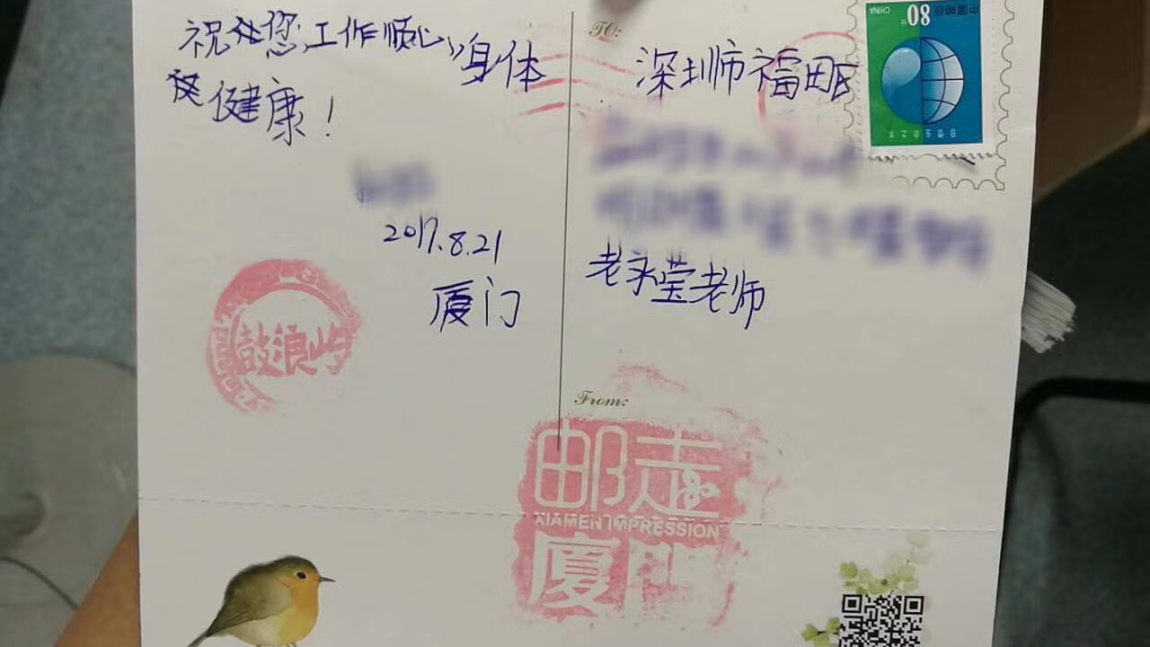 祝您工作顺心,身体
健康!
2017.8.21
厦门
鼓浪屿
TO:
深圳市福田区
老永莹老师
From:
邮走
XIAMEN IMPRESSION
厦門
80
CHINA
中国邮政